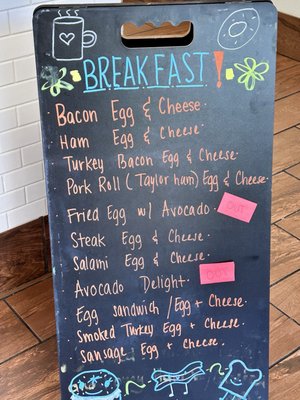 BREAKFAST!
Bacon Egg & Cheese.
Ham Egg & Cheese.
Turkey Bacon Egg & Cheese.
Pork Roll (Taylor ham) Egg & Cheese.
Fried Egg w/ Avocado. OUT
Steak Egg & Cheese.
Salami Egg & Cheese.
Avocado Delight. OUT
Egg sandwich / Egg + Cheese
Smoked Turkey Egg + Cheese.
Sausage Egg + Cheese.